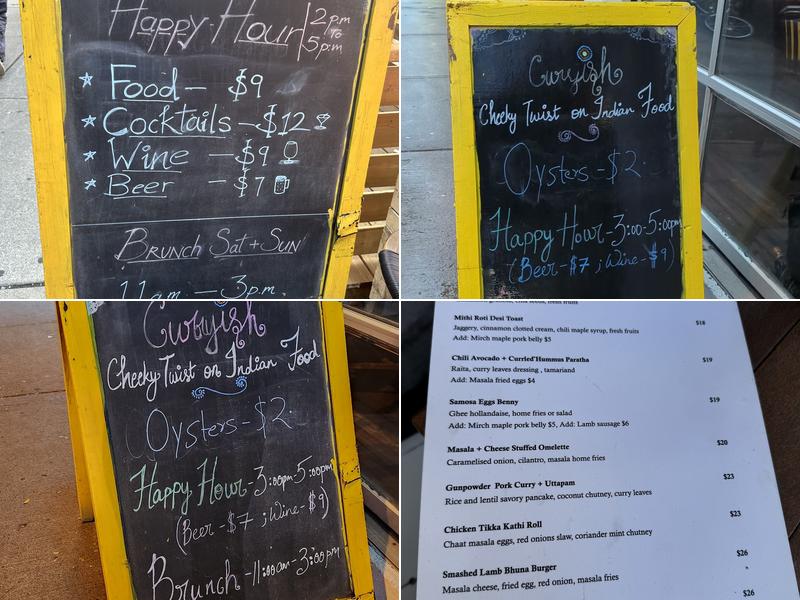 Happy Hour 2pm
To
5p:m
Food - $9
Cocktails - $12
Wine - $9
Beer - $7
Brunch Sat + Sun
11am - 3pm.
Curryish
Cheeky Twist on Indian Food
Oysters - $2.
Happy Hour - 3:00-5:00pm
(Beer - $7 ; Wine - $9)
Curryish
Cheeky Twist on Indian Food
Oysters - $2.
Happy Hour - 3:00pm-5:00pm
(Beer - $7 ; Wine - $9)
Brunch - 11:00am - 3:00pm
fresh fruits
Mithi Roti Desi Toast $18
Jaggery, cinnamon clotted cream, chili maple syrup, fresh fruits
Add: Mirch maple pork belly $5
Chili Avocado + Curried Hummus Paratha $19
Raita, curry leaves dressing , tamariand
Add: Masala fried eggs $4
Samosa Eggs Benny $19
Ghee hollandaise, home fries or salad
Add: Mirch maple pork belly $5, Add: Lamb sausage $6
Masala + Cheese Stuffed Omelette $20
Caramelised onion, cilantro, masala home fries
Gunpowder Pork Curry + Uttapam $23
Rice and lentil savory pancake, coconut chutney, curry leaves
Chicken Tikka Kathi Roll $23
Chaat masala eggs, red onions slaw, coriander mint chutney
Smashed Lamb Bhuna Burger $26
Masala cheese, fried egg, red onion, masala fries
$26